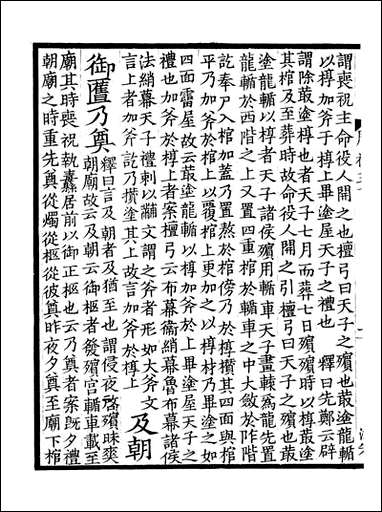 謂喪祝主命役人開之也檀弓曰天子之殯也菆塗龍輴
以椁加斧于椁上畢塗屋天子之禮也 釋曰先鄭云辟
謂除菆塗椁也者天子七月而葬七日殯殯時以椁菆塗
其棺及至葬時故命役人開之引檀弓曰天子之殯也菆
塗龍輴以椁者天子諸侯殯用輴車天子畫轅爲龍先置
龍輴於西階之上又置四重棺於輴車之中大斂於阼階
訖奉尸入棺加蓋乃置熬於棺傍乃於椁攢其四面與棺
平乃加斧於棺上以覆棺上更加之以椁材乃畢塗之如
四面霤屋故云菆塗龍輴以椁加斧于椁上畢塗屋天子之
禮也加斧於椁上者案檀弓云布幕衞綃幕魯布幕諸侯
法綃幕天子禮刺以黼文謂之斧者形如大斧文
言上者加斧訖乃攢塗其上故言加斧於椁上 及朝
御匶乃奠 釋曰言及朝者及猶至也謂侵夜啓殯昧爽
朝廟故云及朝云御柩者發殯宮輴車載至
廟其時喪祝執纛居前以御正柩也云乃奠者案旣夕禮
朝廟之時重先奠從燭從柩從彼奠昨夜夕奠至廟下棺